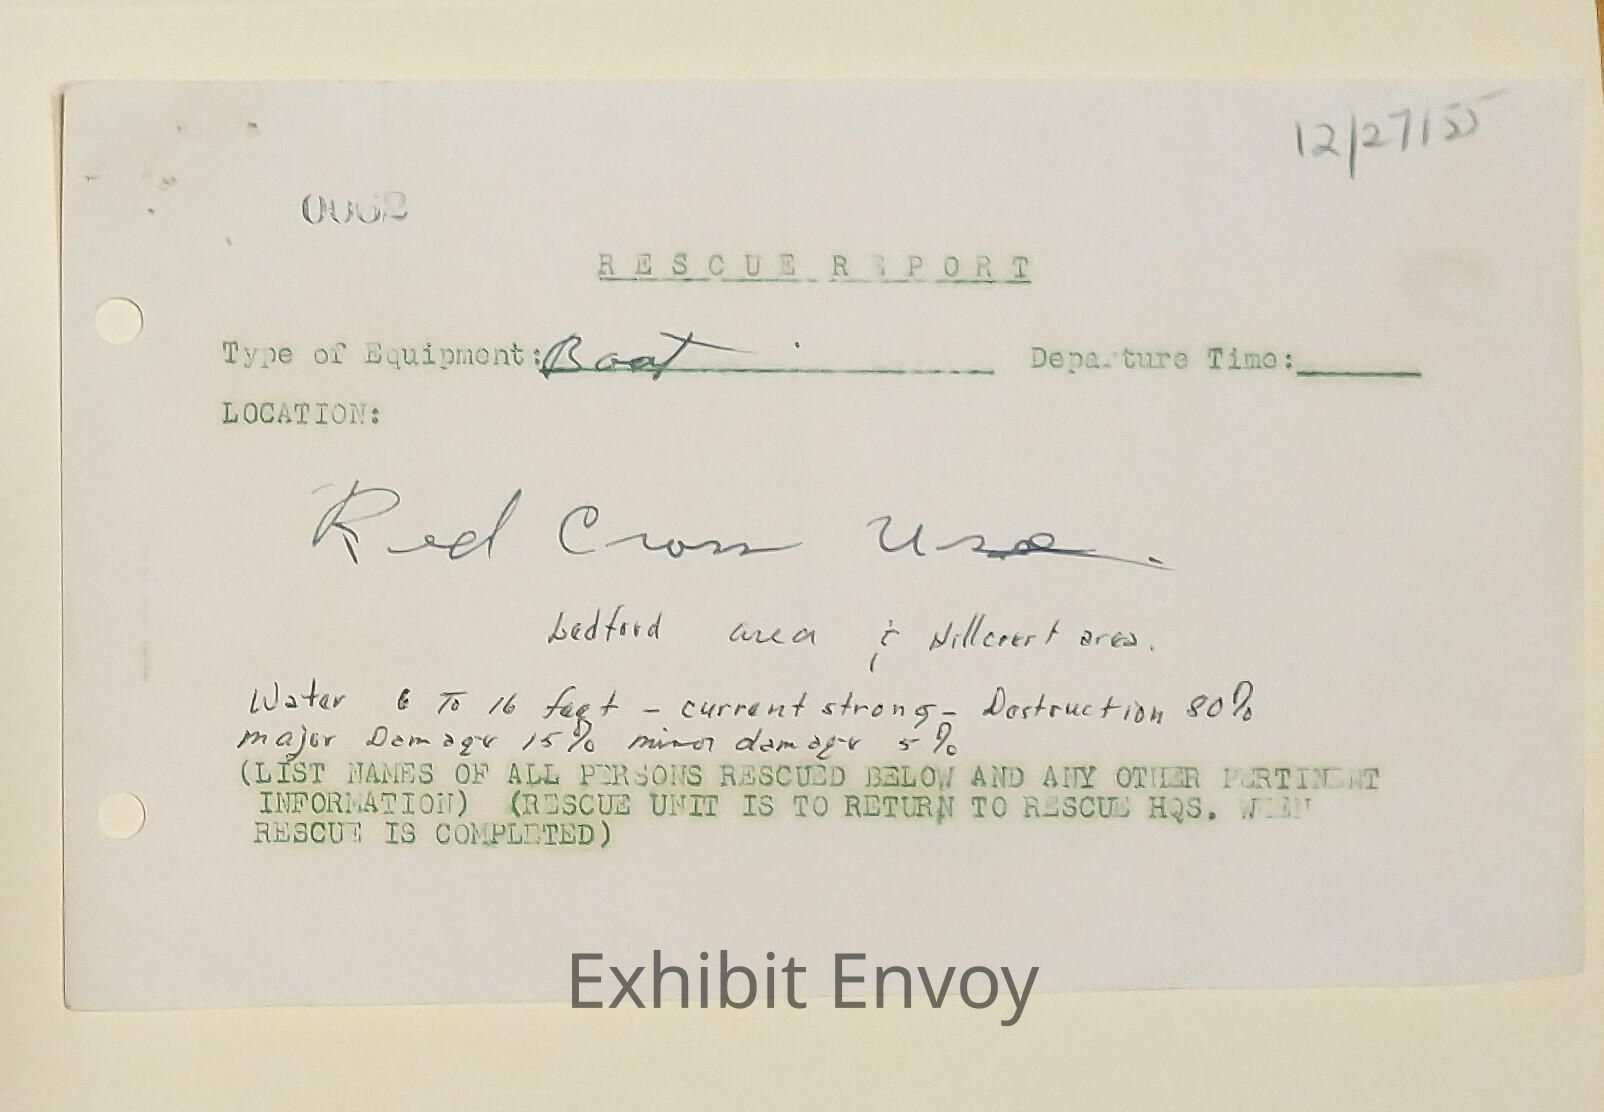 12/27/55
0062
RESCUE REPORT
Type of Equipment: Boat Departure Time:
LOCATION:
Red Cross Use.
Bedford area & Hillcrest area.
Water 6 To 16 feet - current strong - Destruction 80%
major Damage 15% minor damage 5%
(LIST NAMES OF ALL PERSONS RESCUED BELOW AND ANY OTHER PERTINENT
INFORMATION) (RESCUE UNIT IS TO RETURN TO RESCUE HQS. WHEN
RESCUE IS COMPLETED)
Exhibit Envoy